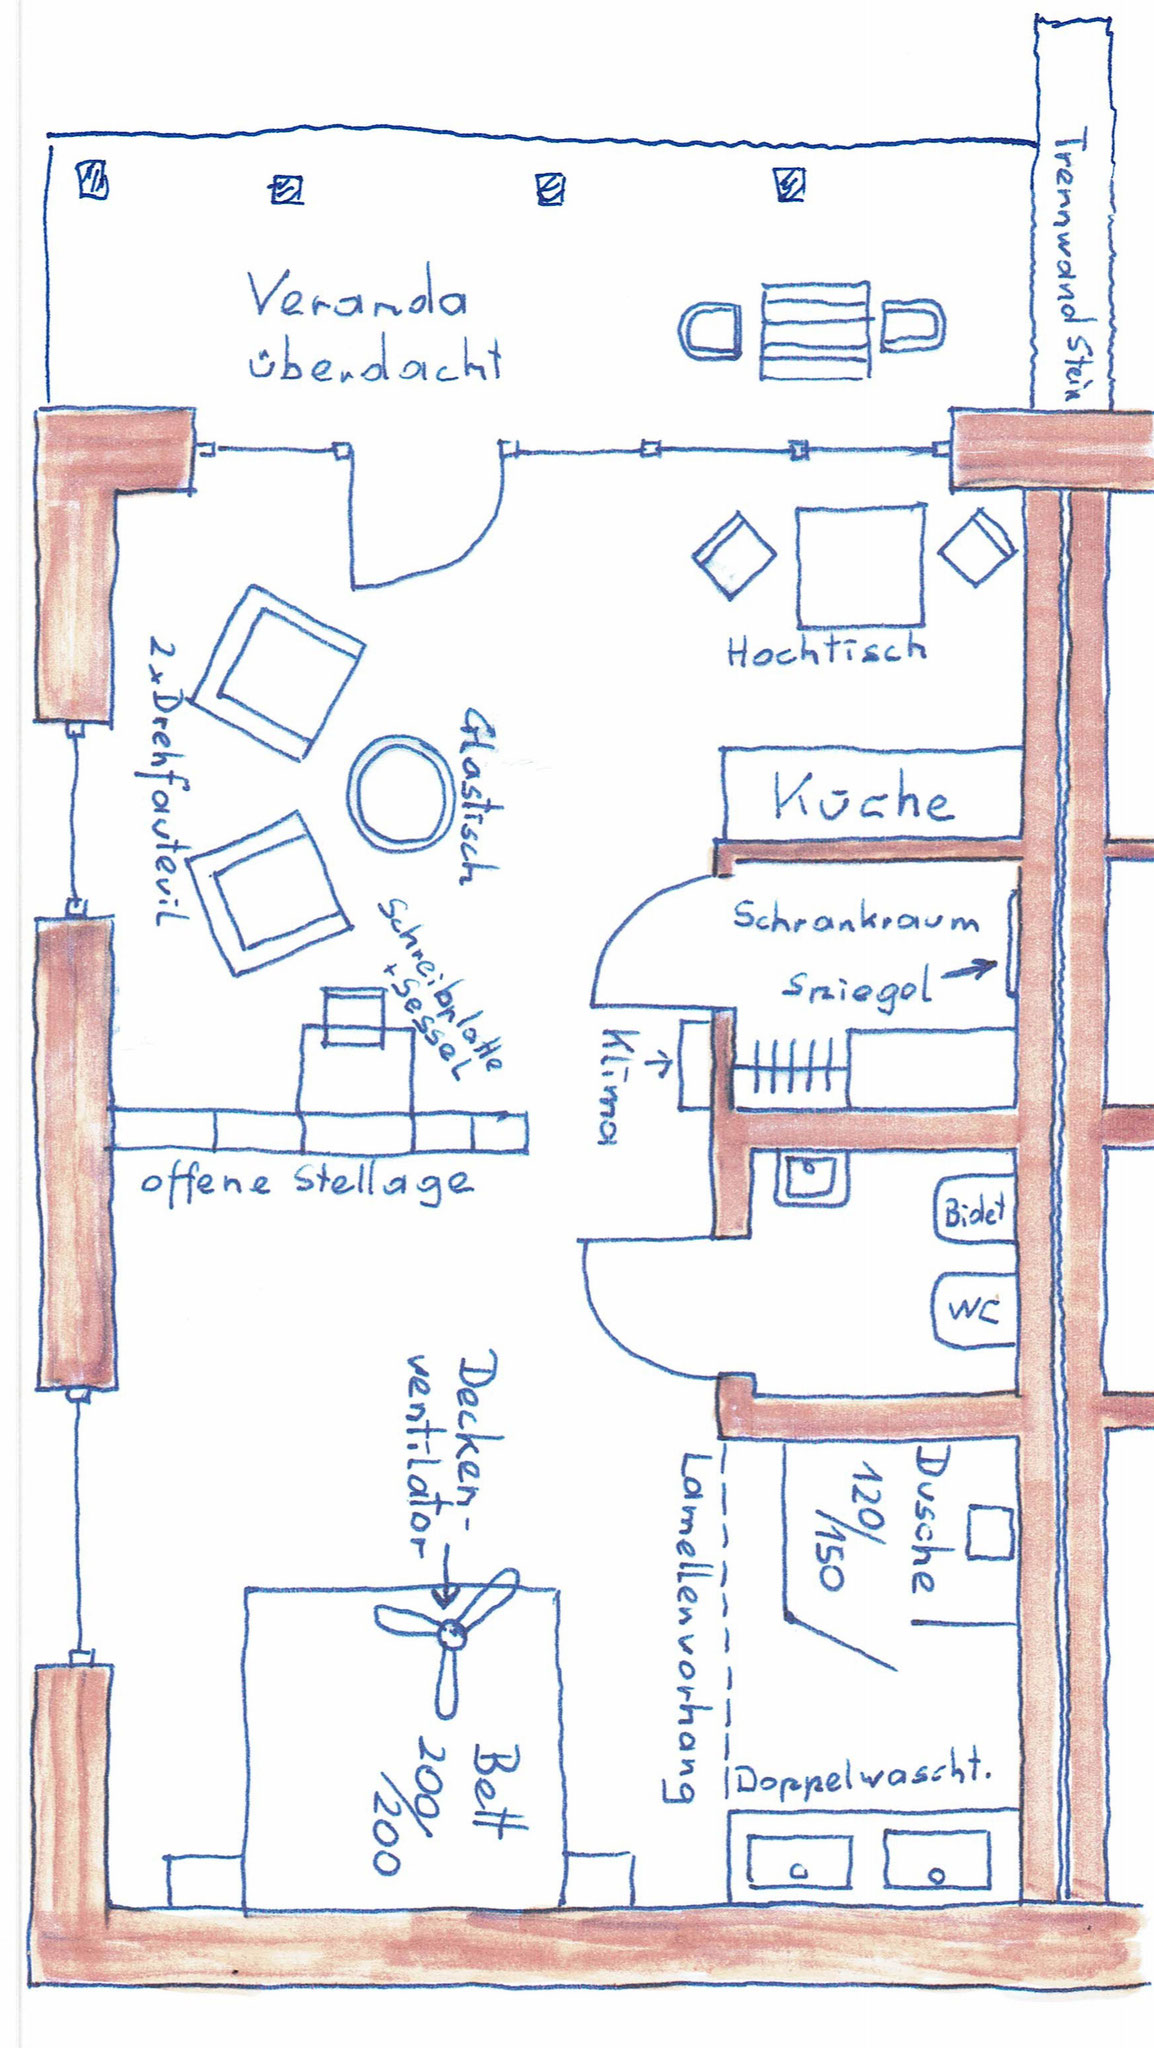 Trennwand Stein
Veranda
überdacht
Hochtisch
2x Drehfauteuil
Glastisch
Küche
Schrankraum
Spiegel
Schreibplatte
+ Sessel
Klima
offene Stellage
Bidet
WC
Decken-
ventilator
Lamellenvorhang
Dusche
120/
150
Bett
200/
200
Doppelwascht.